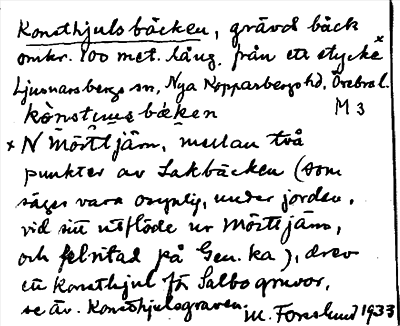 Konsthjulsbäcken, grävd bäck
omkr. 100 met. lång, från ett stycke x
Ljusnarsbergs sn, Nya Kopparbergs hd. Örebro l.
M 3
x N Mörttjärn, mellan två
punkter av Lakbäcken (som
säges vara osynlig, under jorden,
vid sitt utflöde ur Mörttjärn,
och felritad på Gen. ka), drev
ett konsthjul för Salbogruvor,
se äv. Konsthjulsgraven.
M. Forslund 1933